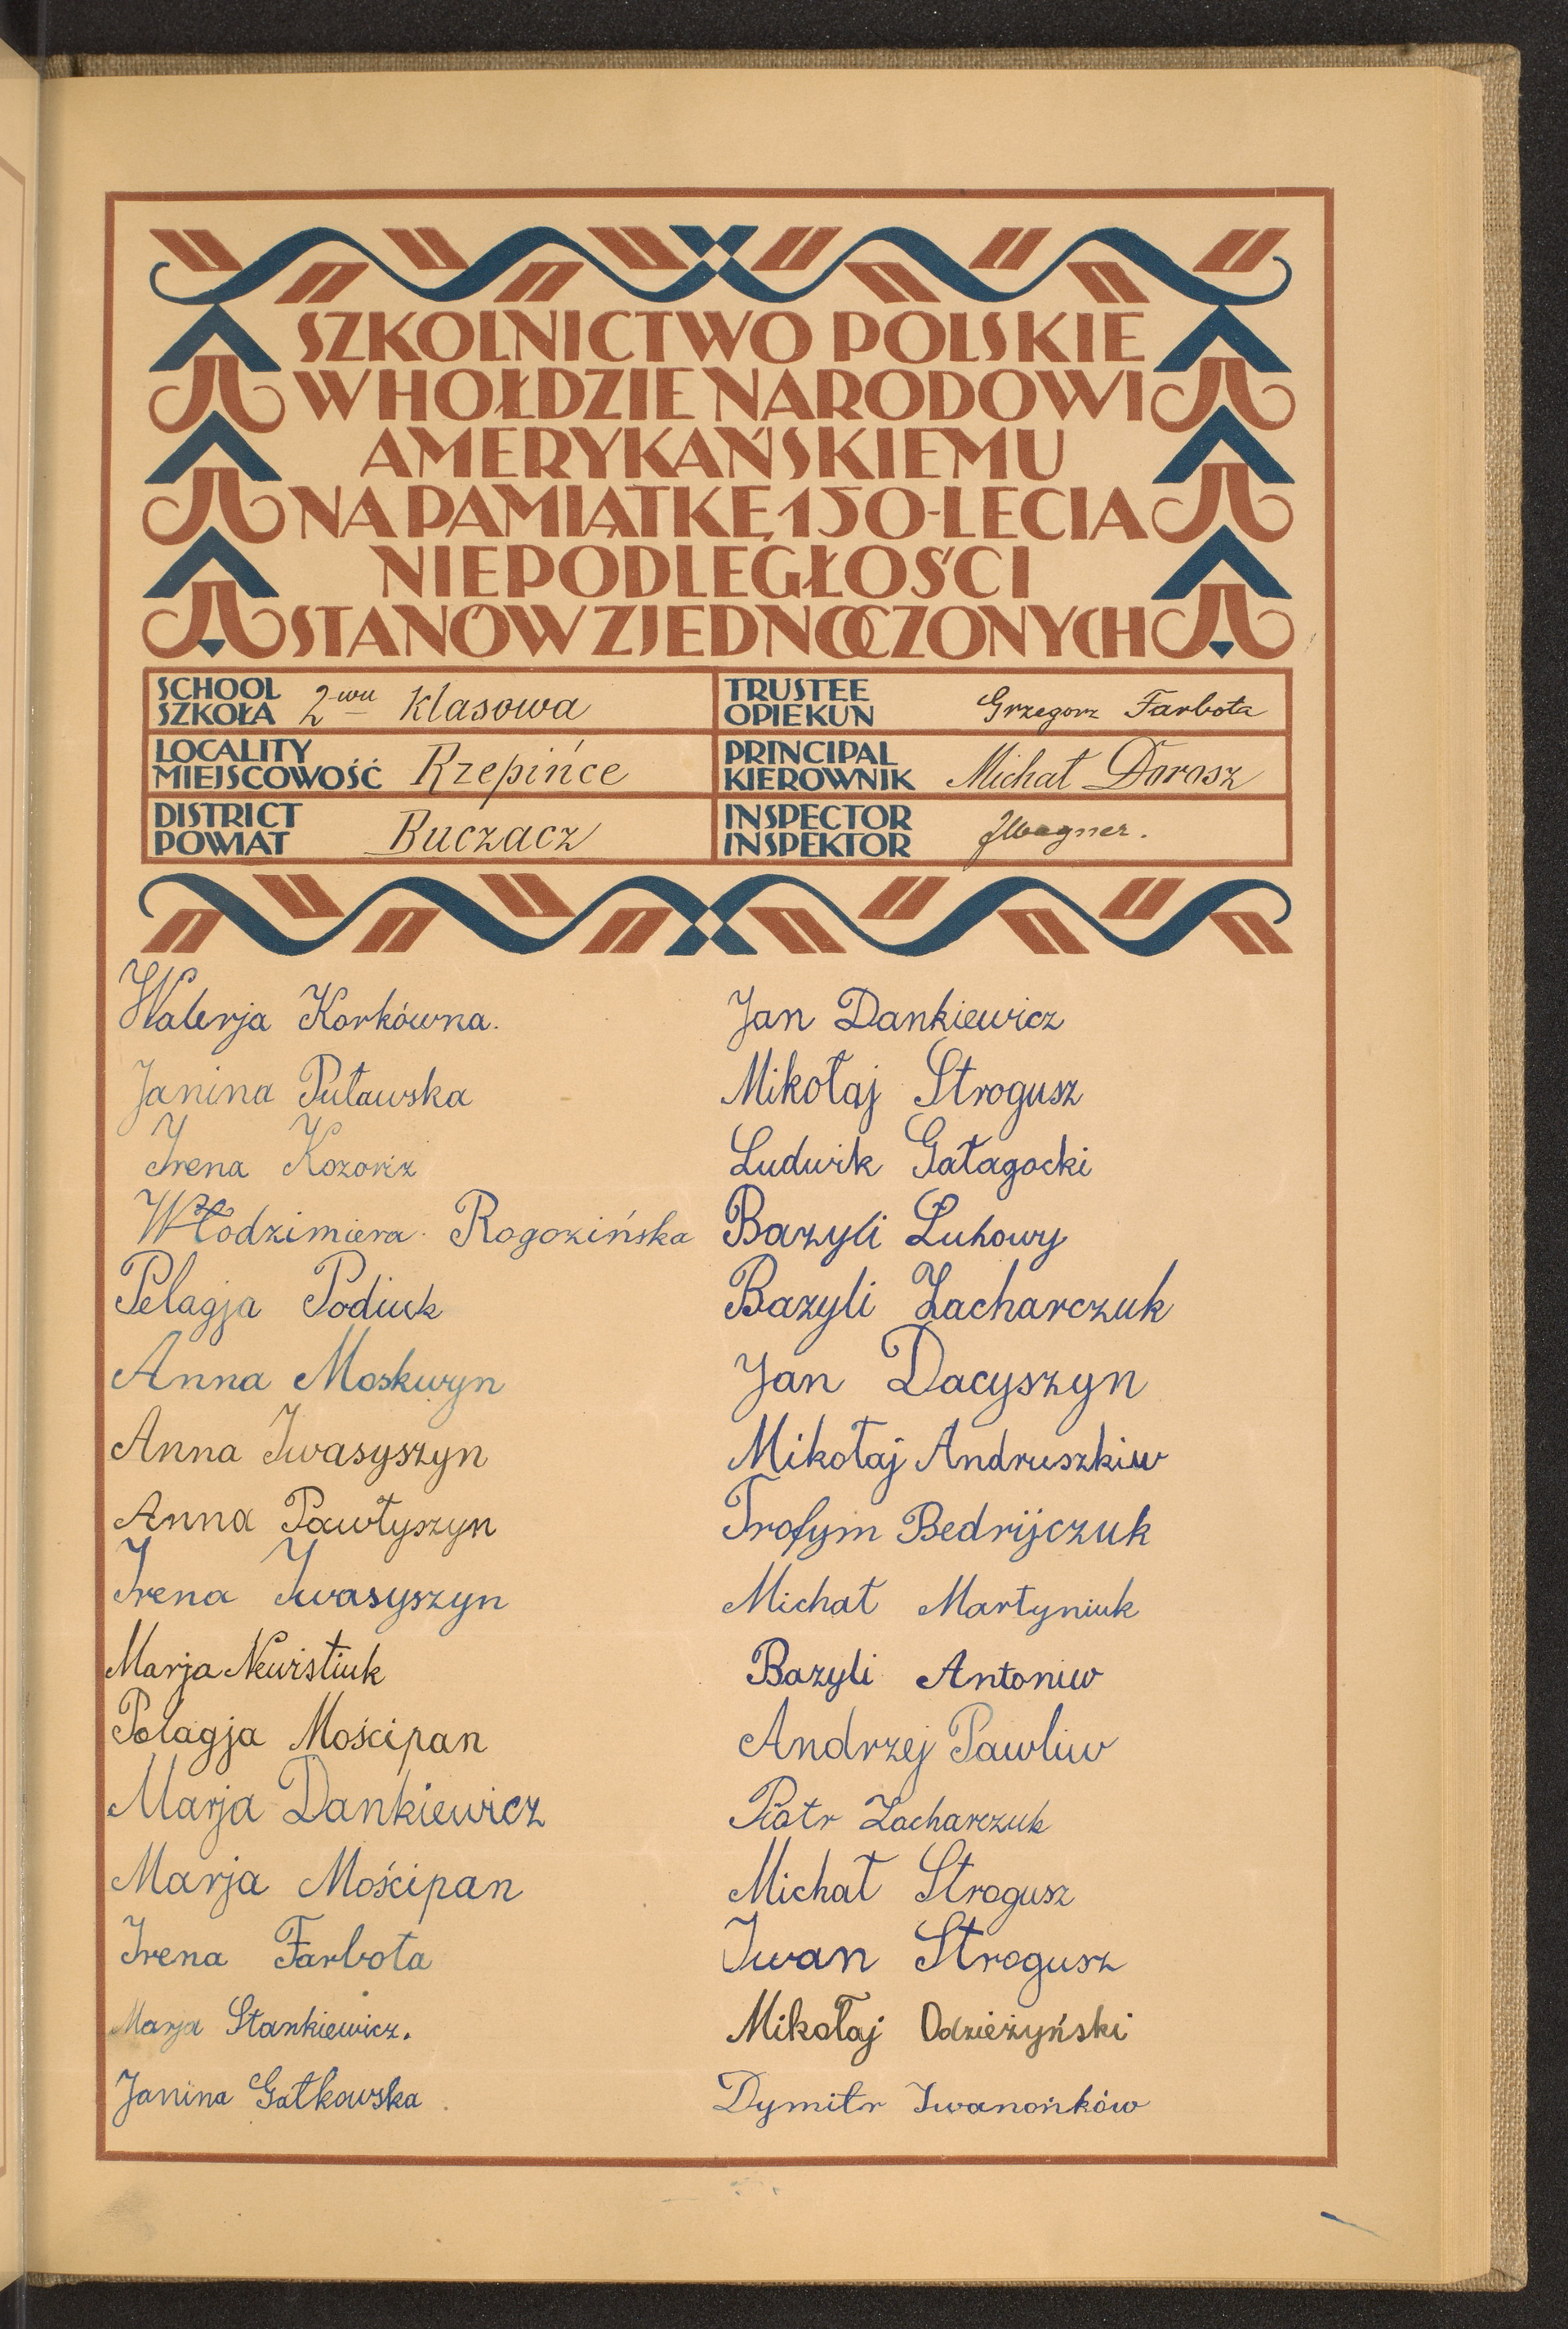 SZKOLNICTWO POLSKIE
W HOŁDZIE NARODOWI
AMERYKAŃSKIEMU
NA PAMIĄTKĘ 150-LECIA
NIEPODLEGŁOŚCI
STANÓW ZJEDNOCZONYCH
SCHOOL
SZKOŁA 2-wu klasowa
LOCALITY
MIEJSCOWOŚĆ Rzepińce
DISTRICT
POWIAT Buczacz
TRUSTEE
OPIEKUN Grzegorz Farbota
PRINCIPAL
KIEROWNIK Michał Dorosz
INSPECTOR
INSPEKTOR JWagner.
Walerja Korkówna.
Janina Puławska
Irena Kozoriz
Włodzimiera Rogozińska
Pelagja Podiuk
Anna Moskwyn
Anna Iwasyszyn
Anna Pawłyszyn
Irena Iwasyszyn
Marja Newistiuk
Polagja Mościpan
Marja Dankiewicz
Marja Mościpan
Irena Farbota
Marja Stankiewicz.
Janina Gałkowska
Jan Dankiewicz
Mikołaj Strogusz
Ludwik Gałagocki
Bazyli Luhowy
Bazyli Zacharczuk
Jan Dacyszyn
Mikołaj Andruszkiw
Trofym Bedrijczuk
Michał Martyniuk
Bazyli Antoniw
Andrzej Pawliw
Piotr Zacharczuk
Michał Strogusz
Iwan Strogusz
Mikołaj Odzieżyński
Dymitr Iwanońków